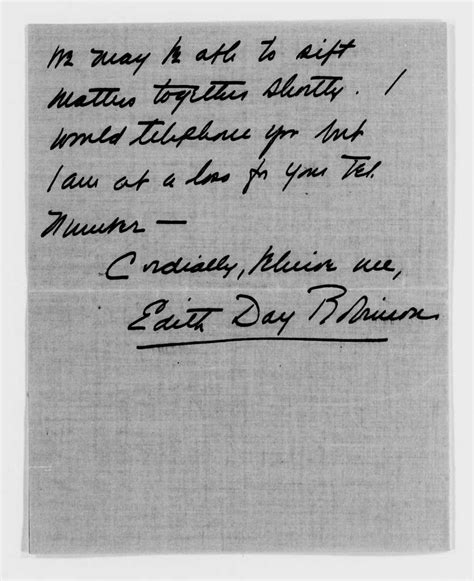 We may be able to sift
matters together shortly. I
would telephone you but
I am at a loss for your Tel.
Number —
Cordially, believe me,
Edith Day Robinson